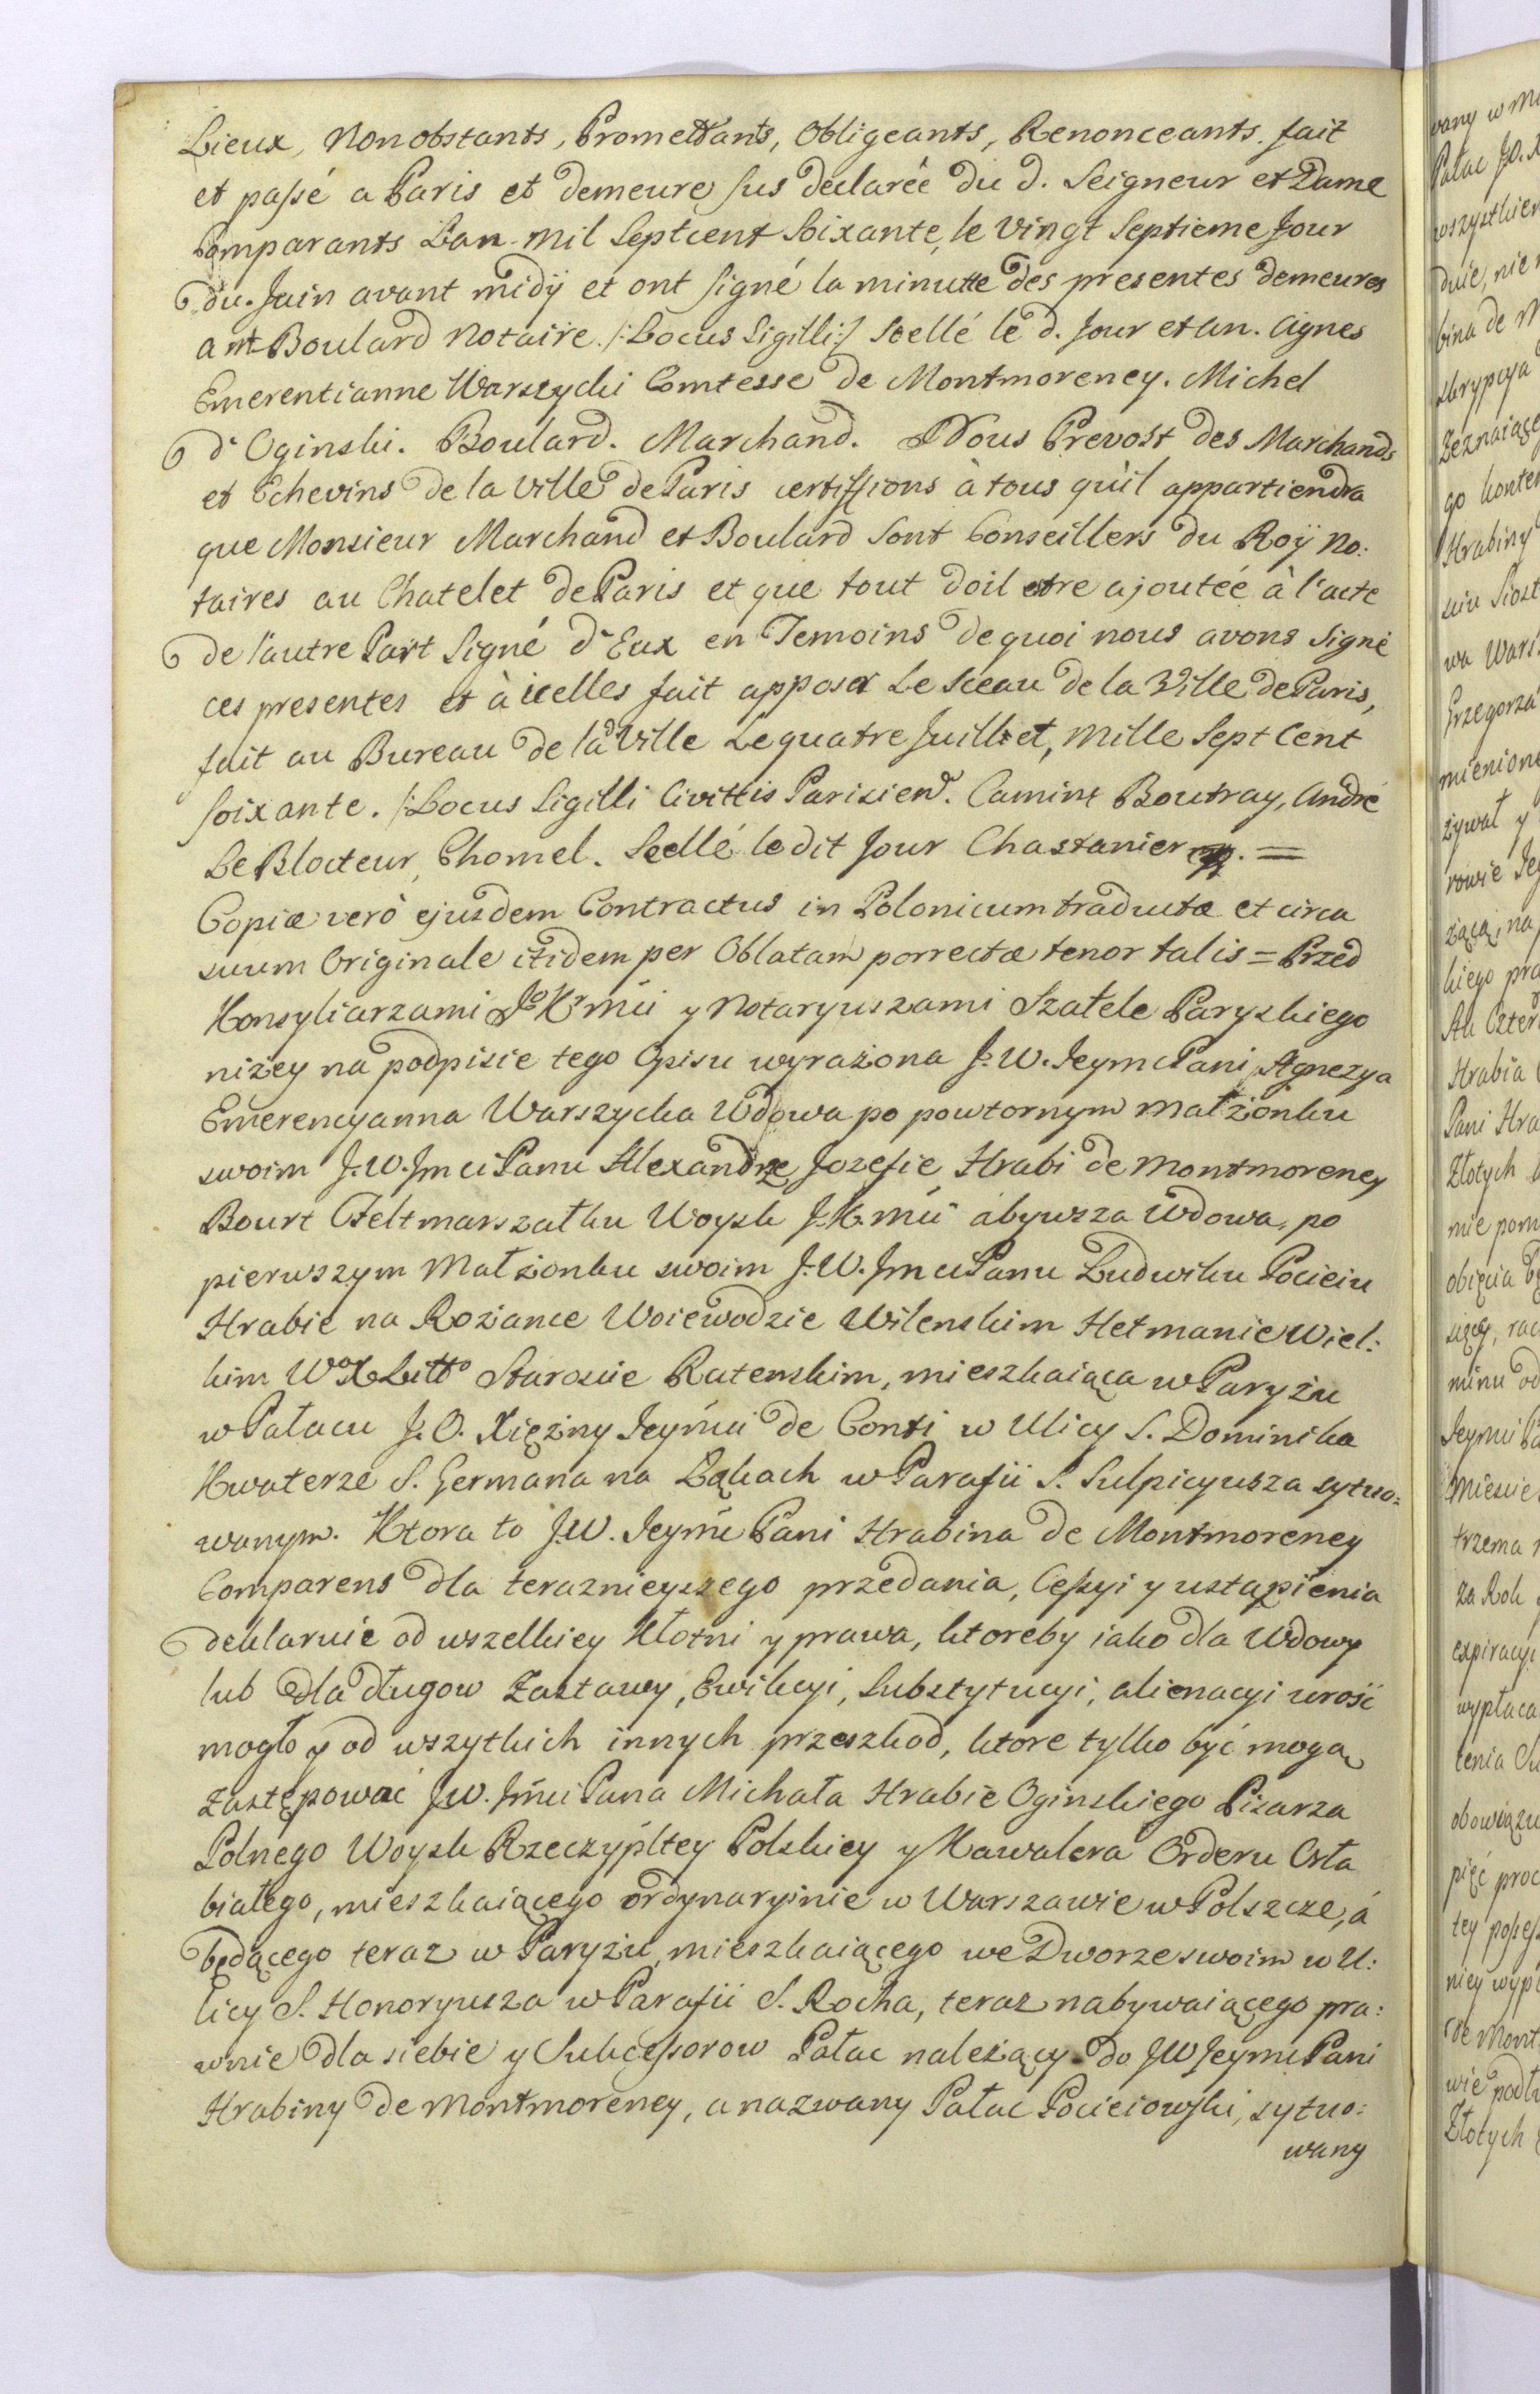 Lieux, Nonobstants, Promettants, Obligeants, Renonceants. fait
et passé a Paris et demeure sus declarée du d. Seigneur et Dame
Comparants L'an mil Septcent Soixante, le Vingt Septieme Jour
du Juin avant midÿ et ont signé la minutte des presentes demeures
a mt Boulard Notaire. /:Locus Sigilli:/ Scellé le d. Jour et an. Agnes
Emerentianne Warszycki Comtesse de Montmorency. Michel
d'Oginski. Boulard. Marchand. Nous Prevost des Marchands
et Echevins de la Ville de Paris certiffions à tous qu'il appartiendra
que Monsieur Marchand et Boulard sont Conseillers du Roÿ No:
taires au Chatelet de Paris et que tout doil etre ajoutéé à l'acte
de l'autre Part Signé d'Eux en Temoins de quoi nous avons signé
ces presentes et à icelles fait apposer Le Sceau de la Ville de Paris,
fait au Bureau de la Ville Le quatre Juilliet, Mille Sept Cent
soixante. /:Locus Sigilli Civittis Parisien. Camint Boutray, André
Le Blocteur, Chomel. Scellé le dit Jour Chastanier mp. =
Copiæ verò ejusdem Contractus in Polonicum traductæ et circa
suum Originale itidem per Oblatam porrectæ tenor talis = Przed
Konsyliarzami Jo Kr mći y Notaryuszami Szatele Paryzkiego
niżey na podpisie tego Opisu wyrażona J. W. Jeymć Pani Agnezya
Emerencyanna Warszycka Wdowa po powtornym małżonku
swoim J. W. Jmci Panu Alexandrze Jozefie Hrabi de Montmorency
Bourt Feltmarszałku Woysk J. K. mći a bywsza Wdowa, po
pierwszym Małżonku swoim J. W. Jmci Panu Ludwiku Pocieiu
Hrabie na Rożance Woiewodzie Wilenskim Hetmanie Wiel:
kim W X Litto Staroscie Ratenskim, mieszkaiąca w Paryżu
w Pałacu J. O. Xiężny Jeymći de Conti w Ulicy S. Dominika
Kwaterze S. Germana na Łąkach w Parafii S. Sulpicyusza sytuo:
wanym. Ktora to J. W. Jeymć Pani Hrabina de Montmorency
Comparens dla teraznieyszego przedania, Cessyi y ustąpienia
deklaruie od wszelkiey Kłotni y prawa, ktoreby iako dla Wdowy
lub dla długow Zastawy, Ewikcyi, Substytucyi, alienacyi urość
mogło y od wszytkich innych przeszkod, ktore tylko być mogą
zastępować JW. Jmći Pana Michała Hrabie Oginskiego Pisarza
Polnego Woysk Rzeczypltey Polskiey y Kawalera Orderu Orła
białego, mieszkaiącego ordynaryinie w Warszawie w Polszcze, á
będącego teraz w Paryżu, mieszkaiącego we Dworze swoim w U:
licy S. Honoryusza w Parafii S. Rocha, teraz nabywaiącego pra:
wnie dla siebie y Sukcessorow Pałac należący do JW Jeymć Pani
Hrabiny de Montmorency, a nazwany Pałac Pocieiowski, sytuo:
wany